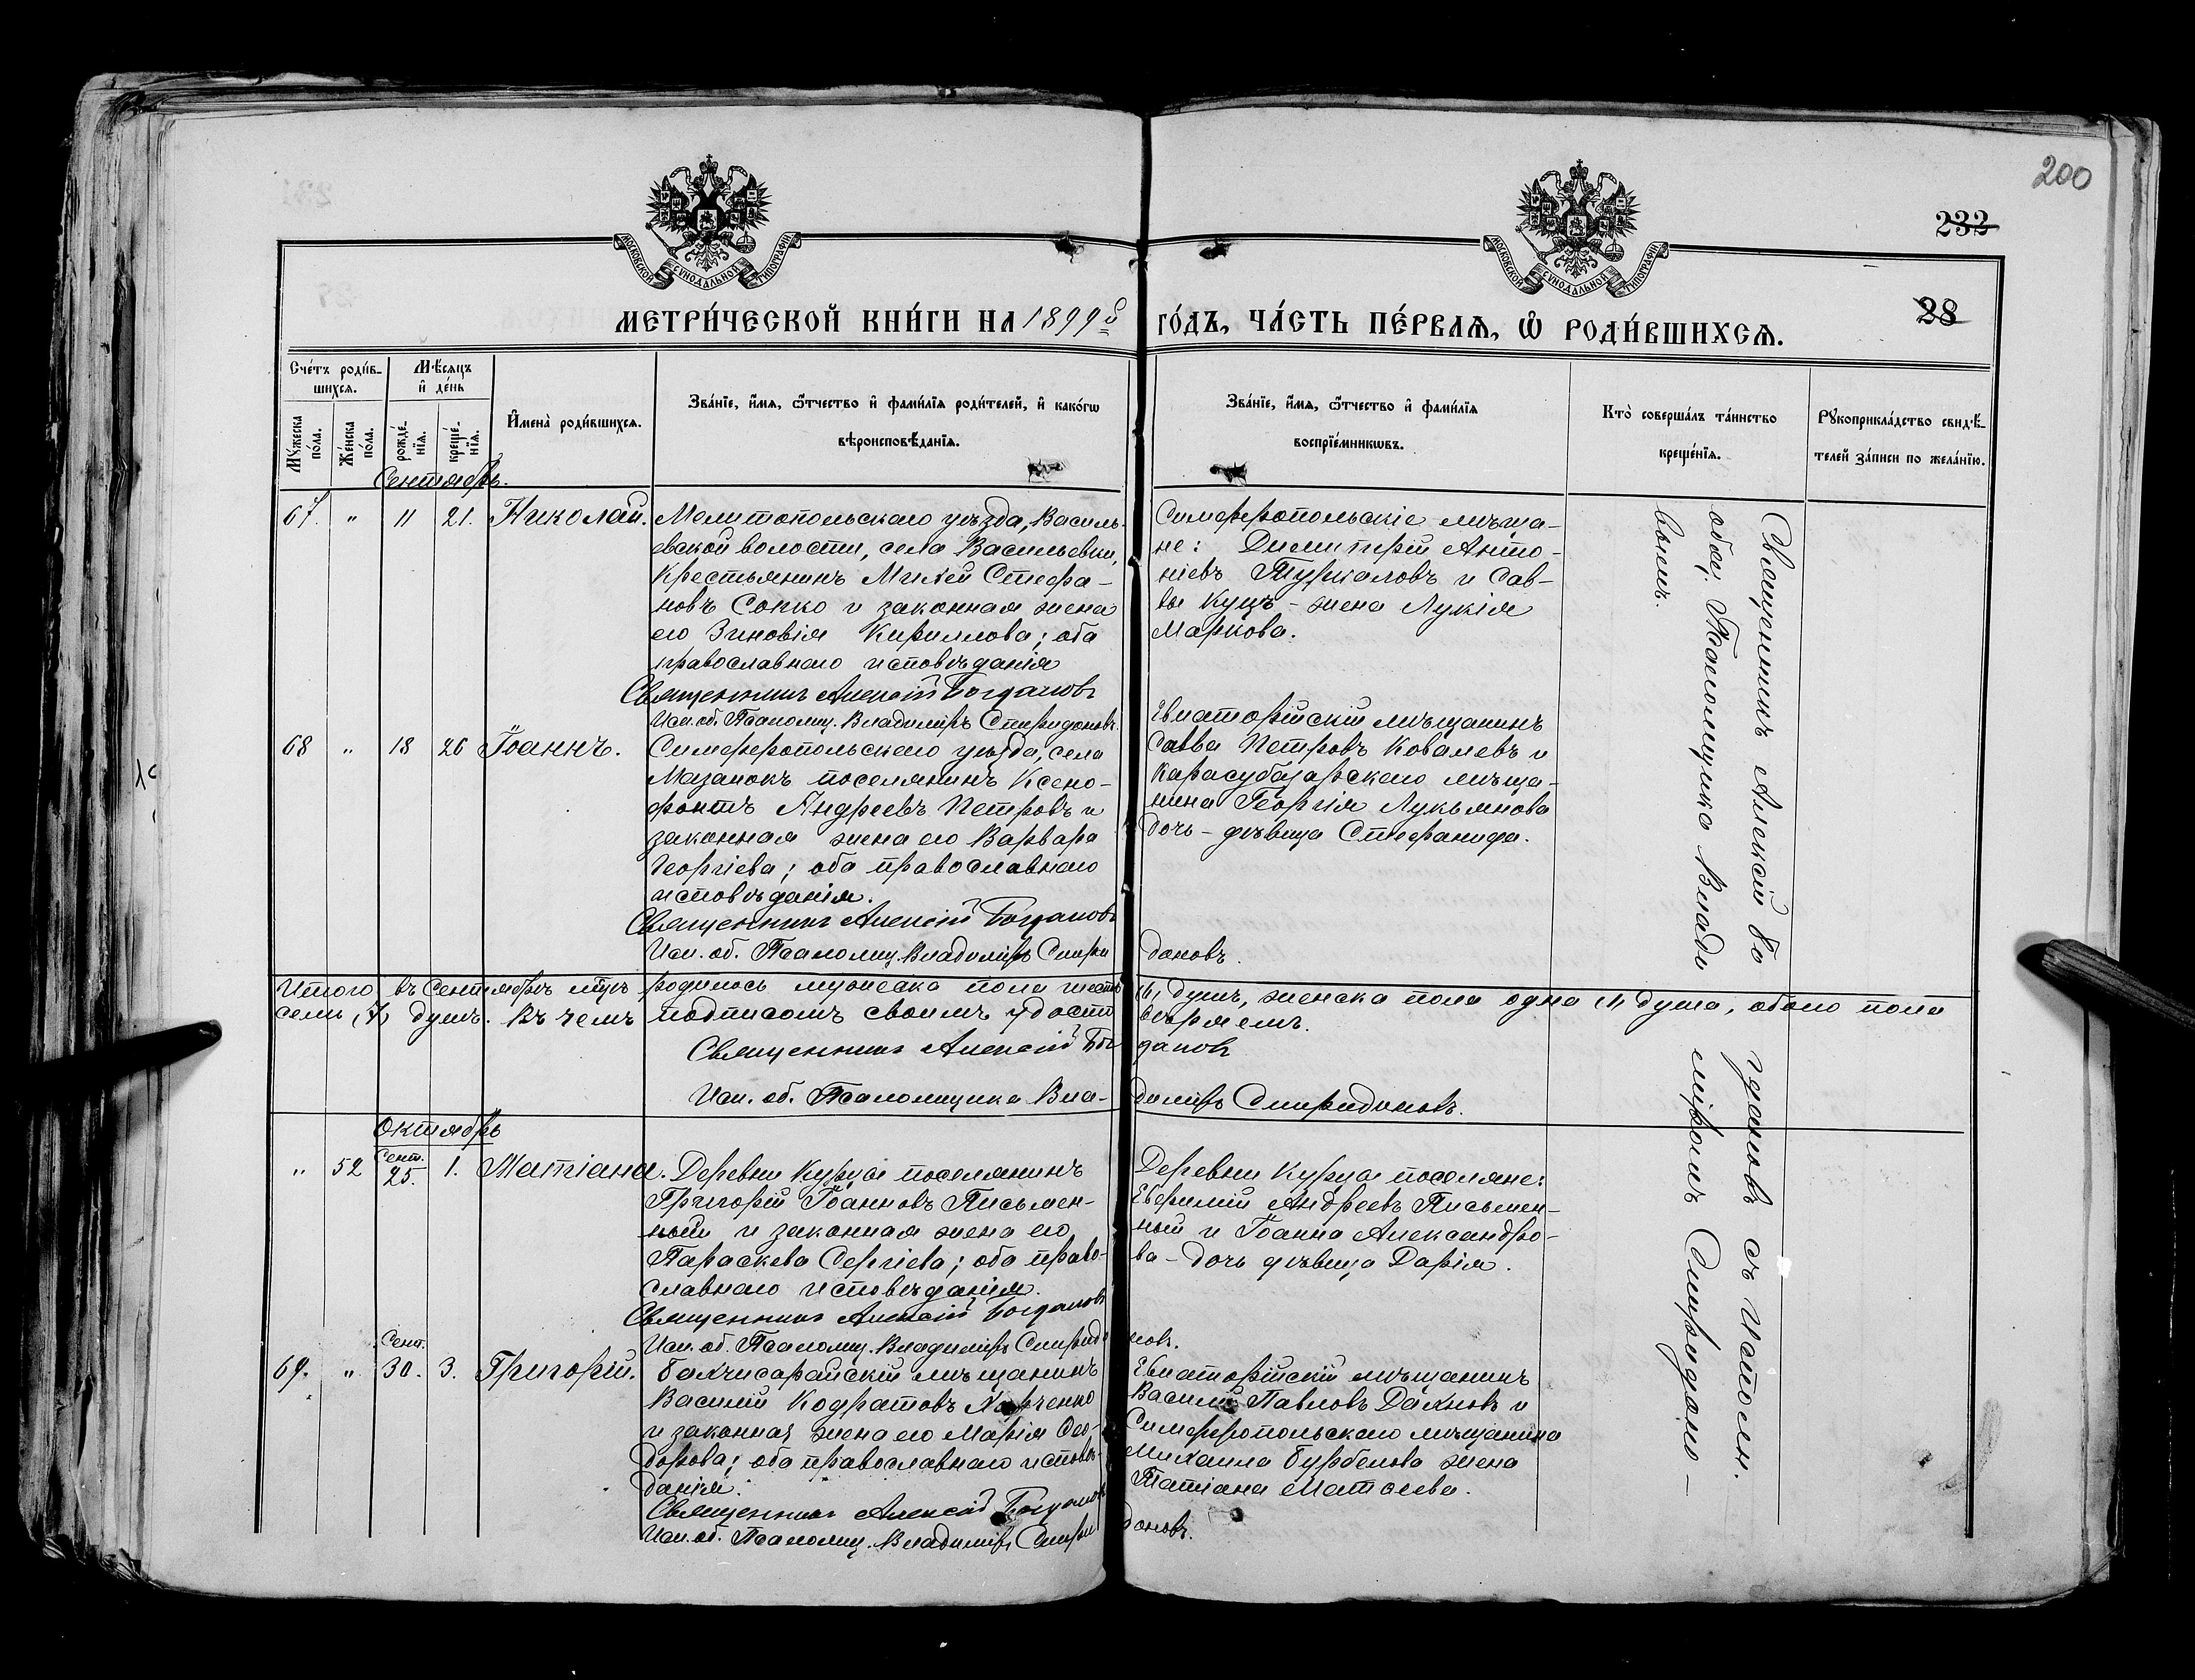 200
232
28
МОСКОВСКОЙ СѴНОДАЛЬНОЙ ТИПОГРАФІИ
МОСКОВСКОЙ СѴНОДАЛЬНОЙ ТИПОГРАФІИ
МЕТРИ́ЧЕСКОЙ КНИ́ГИ НА 1899й ГО́ДЪ, ЧА́СТЬ ПЕ́РВАѦ, Ѡ РОДИ́ВШИХСѦ.
Сче́тъ роди́вшихсѧ.
Мꙋ́жеска по́ла.
Же́нска по́ла.
Мѣ́сѧцъ и҆ де́нь
рожде́нїѧ.
креще́нїѧ.
И҆мена̀ роди́вшихсѧ.
Зва́нїе, и҆́мѧ, ѻ҆́тчество и҆ фами́лїѧ роди́телей, и҆ како́гѡ
вѣроисповѣ́данїѧ.
Зва́нїе, и҆́мѧ, ѻ҆́тчество и҆ фами́лїѧ
воспрїе́мникѡвъ.
Кто̀ соверша́лъ та́инство
креще́нїѧ.
Рꙋкоприкла́дство свидѣ́телей за́писи по жела́нїю.
Сентябрь.
67. " 11 21. Николай.
Мелитопольскаго уѣзда, Василь-
евской волости, села Васильевки,
крестьянинъ Михей Стефа-
новъ Сопко и законная жена
его Зиновія Кириллова; оба
православнаго исповѣданія
Священникъ Алексій Богдановъ
Исп. об. Псаломщ. Владиміръ Спиридоновъ.
Симферопольскіе мѣща-
не: Димитрій Анто-
ніевъ Тукаловъ и Сав-
вы Куцъ - жена Лукія
Маркова.
68 " 18 26 Іоаннъ.
Симферопольскаго уѣзда, села
Мазанокъ поселянинъ Ксено-
фонтъ Андреевъ Петровъ и
законная жена его Варвара
Георгіева; оба православнаго
исповѣданія.
Священникъ Алексій Богдановъ
Исп. об. Псаломщ. Владиміръ Спиридоновъ.
Евпаторійскій мѣщанинъ
Савва Петровъ Ковалевъ и
Карасубазарскаго мѣща-
нина Георгія Лукьянова
дочь - дѣвица Стефанида.
Итого въ Сентябрѣ мцѣ родилось мужеска пола шесть (6) душъ, женска пола одна (1) душа, обоего пола
семь (7) душъ. Въ чемъ подписомъ своимъ удостовѣряемъ.
Священникъ Алексій Богдановъ
Исп. об. Псаломщика Владиміръ Спиридоновъ.
Октябрь
" 52 Сент. 25. 1. Татіана.
Деревни Курца поселянинъ
Григорій Іоанновъ Письмен-
ный и законная жена его
Параскева Сергіева; оба право-
славнаго исповѣданія.
Священникъ Алексій Богдановъ
Исп. об. Псаломщ. Владиміръ Спиридоновъ.
Деревни Курца поселяне:
Ефримій Андреевъ Письмен-
ный и Іоанна Александро-
ва - дочь дѣвица Дарія.
69. " Сент. 30. 3. Григорій.
Бахчисарайскій мѣщанинъ
Василій Кодратовъ Харченко
и законная жена его Марія Ѳео-
дорова; оба православнаго исповѣ-
данія.
Священникъ Алексій Богдановъ
Исп. об. Псаломщ. Владиміръ Спиридоновъ.
Евпаторійскій мѣщанинъ
Василій Павловъ Дахновъ и
Симферопольскаго мѣщанина
Михаила Бурбелова жена
Татіана Матѳеева.
Священникъ Алексій Богдановъ съ исполн.
обяз. Псаломщика Владиміромъ Спиридоно-
вымъ.